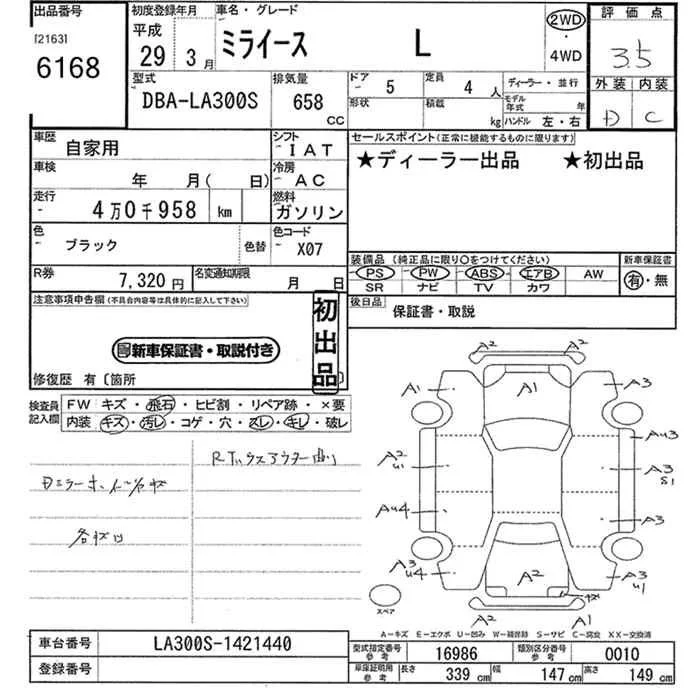 出品番号 初度登録年月 車名・グレード 評価点
[2163] 平成 2WD
6168 29 3月 ミライース L 4WD 3.5
型式 排気量 ドア 5 定員 4人 ディーラー・並行 外装 内装
DBA-LA300S 658 CC 形状 積載 kg モデル年式 年 D C
ハンドル 左・右
車歴 自家用 シフト IAT セールスポイント(正常に機能するものに限ります)
車検 年 月( 日) 冷房 AC ★ディーラー出品 ★初出品
走行 4万0千958 km 燃料 ガソリン
色 ブラック 色替 色コード X07
装備品 (純正品に限り○をつけてください) 新車保証書
R券 7,320円 名変通知期限 月 日 PS PW ABS エアB AW 有・無
SR ナビ TV カワ
注意事項申告欄(不具合内容等は具体的に記入して下さい) 初出品 後日品 保証書・取説
新車保証書・取説付き
修復歴 有〔箇所 〕
検査員記入欄 FW キズ・飛石・ヒビ割・リペア跡・×要
内装 キズ・汚レ・コゲ・穴・スレ・キレ・破レ
A2 A2
A1 A1 A3
AU3
A2 U1 A3 S1
AU4 A3
A3 U4 A2 A3 U1
キズ
スペア A2 A1
A-キズ E-エクボ U-凹み W-補修跡 S-サビ C-腐食 XX-交換済
車台番号 LA300S-1421440 型式指定番号 参考 16986 類別区分番号 参考 0010
登録番号 車庫証明用 参考 長さ 339 cm 幅 147 cm 高さ 149 cm